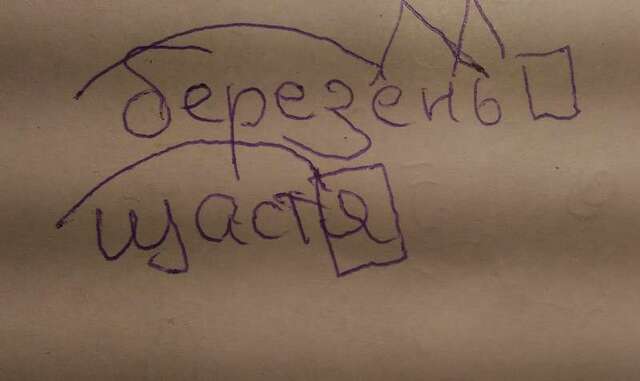 березень
щастя